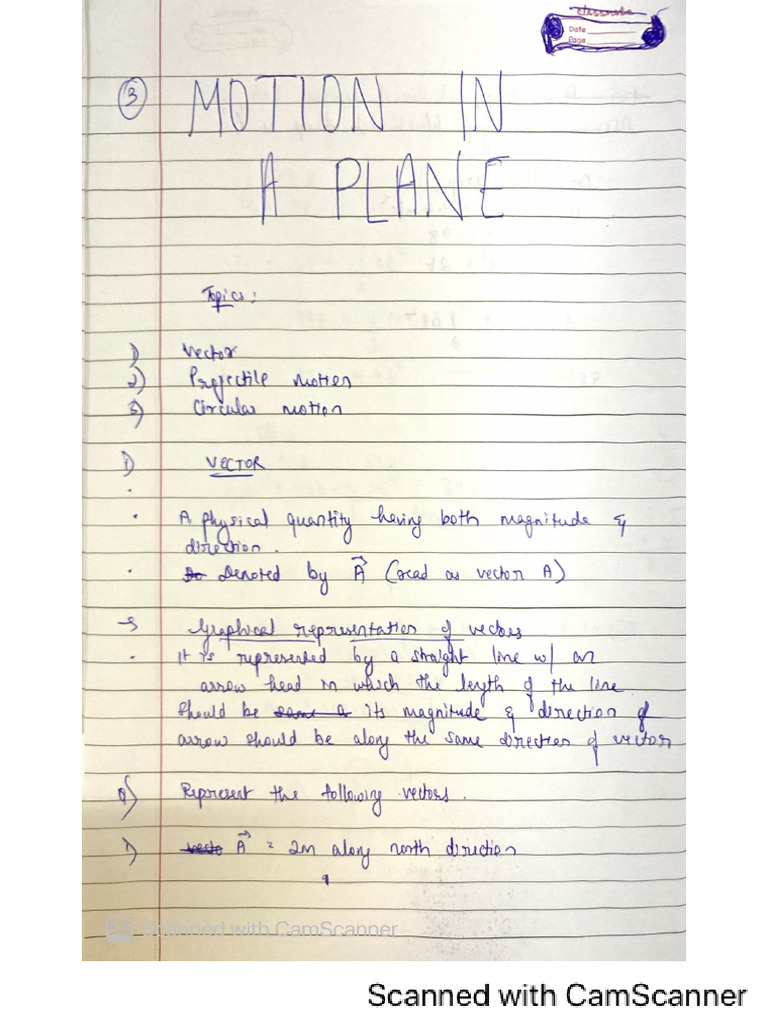 classmate
Date
Page
3 MOTION IN
A PLANE
Topics:
1) Vector
2) Projectile motion
3) Circular motion
1) VECTOR
A physical quantity having both magnitude &
direction.
Denoted by A⃗ (read as vector A)
→ Graphical representation of vectors
It is represented by a straight line w/ an
arrow head in which the length of the line
should be its magnitude & direction of
arrow should be along the same direction of vector
Q) Represent the following vectors.
1) A⃗ = 2m along north direction
Scanned with CamScanner
Scanned with CamScanner